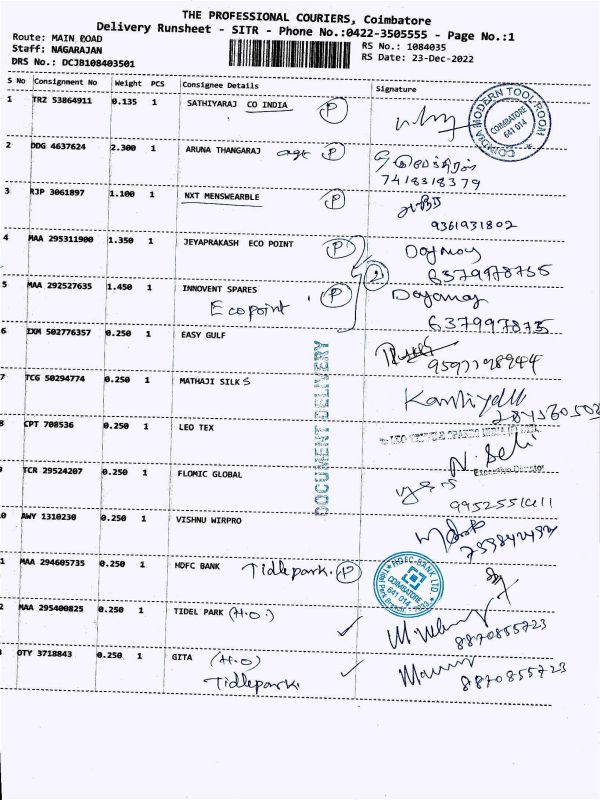 THE PROFESSIONAL COURIERS, Coimbatore
Delivery Runsheet - SITR - Phone No.:0422-3505555 - Page No.:1
Route: MAIN ROAD
Staff: NAGARAJAN
DRS No.: DCJB108403501
RS No.: 1084035
RS Date: 23-Dec-2022
S No Consignment No Weight PCS Consignee Details Signature
1 TRZ 53864911 0.135 1 SATHIYARAJ CO INDIA P
COINDIA MODERN TOOL ROOM
COIMBATORE
641 014
2 DDG 4637624 2.300 1 ARUNA THANGARAJ P
7418318379
3 RJP 3061897 1.100 1 NXT MENSWEARBLE P
9361931802
4 MAA 295311900 1.350 1 JEYAPRAKASH ECO POINT P
2
5 MAA 292527635 1.450 1 INNOVENT SPARES P
Ecopoint
6379978735
6 IXM 502776357 0.250 1 EASY GULF
DOCUMENT DELIVERY
7 TCG 50294774 0.250 1 MATHAJI SILKS
8 CPT 708536 0.250 1 LEO TEX
N. Seli
Executive Director
9 TCR 29524207 0.250 1 FLOMIC GLOBAL
0 AWY 1310230 0.250 1 VISHNU WIRPRO
1 MAA 294605735 0.250 1 HDFC BANK Tidlepark. P
HDFC-BANK LTD.
COIMBATORE
641 014
2 MAA 295400825 0.250 1 TIDEL PARK (H.O.)
8870855723
OTY 3718843 0.250 1 GITA (H.O)
Tidlepark
8870855723